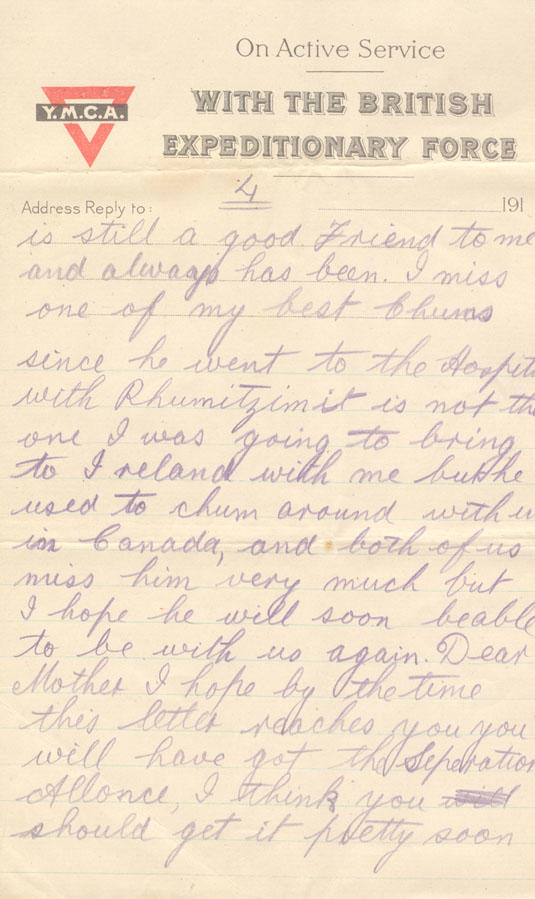 On Active Service
WITH THE BRITISH
EXPEDITIONARY FORCE
Y.M.C.A.
4
Address Reply to: 191
is still a good Friend to me
and always has been. I miss
one of my best Chums
since he went to the Hospit
with Rhumitzim it is not th
one I was going to bring
to Ireland with me but he
used to chum around with u
in Canada, and both of us
miss him very much but
I hope he will soon beable
to be with us again. Dear
Mother I hope by the time
this letter reaches you you
will have got the Seperation
Allonce, I think you will
should get it pretty soon